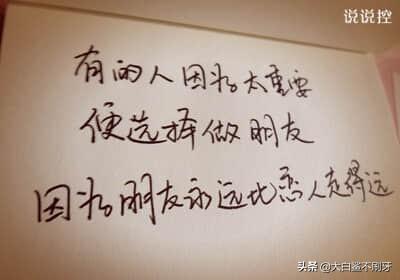 说说控
有的人因为太重要
便选择做朋友
因为朋友永远比恋人走得远
头条 @大白鲨不刷牙